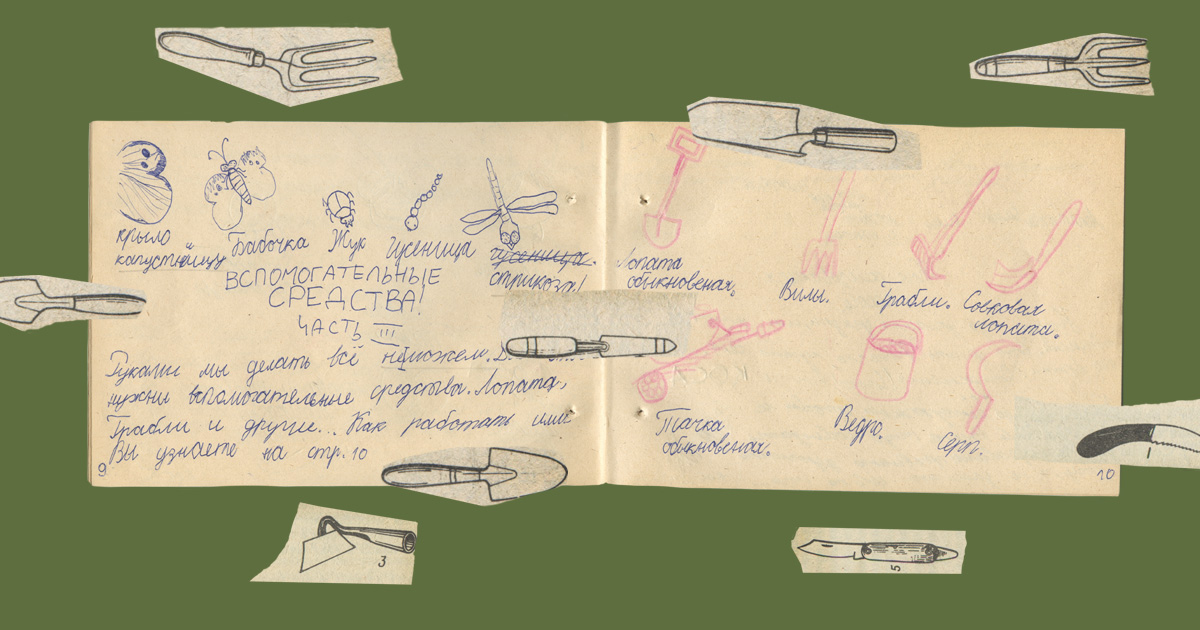 крыло
капустницу
Бабочка
Жук
Гусеница
гусеница.
стрикоза!
ВСПОМОГАТЕЛЬНЫЕ
СРЕДСТВА!
ЧАСТЬ III
Руками мы делать всё не можем.
нужны вспомогательные средства. Лопата,
Грабли и другие... Как работать ими
Вы узнаете на стр. 10
9
Лопата
обикновеная.
Вилы.
Грабли.
Совковая
лопата.
КОСА
Тачка
обикновеная.
Ведро.
Серп.
10
1
3
5